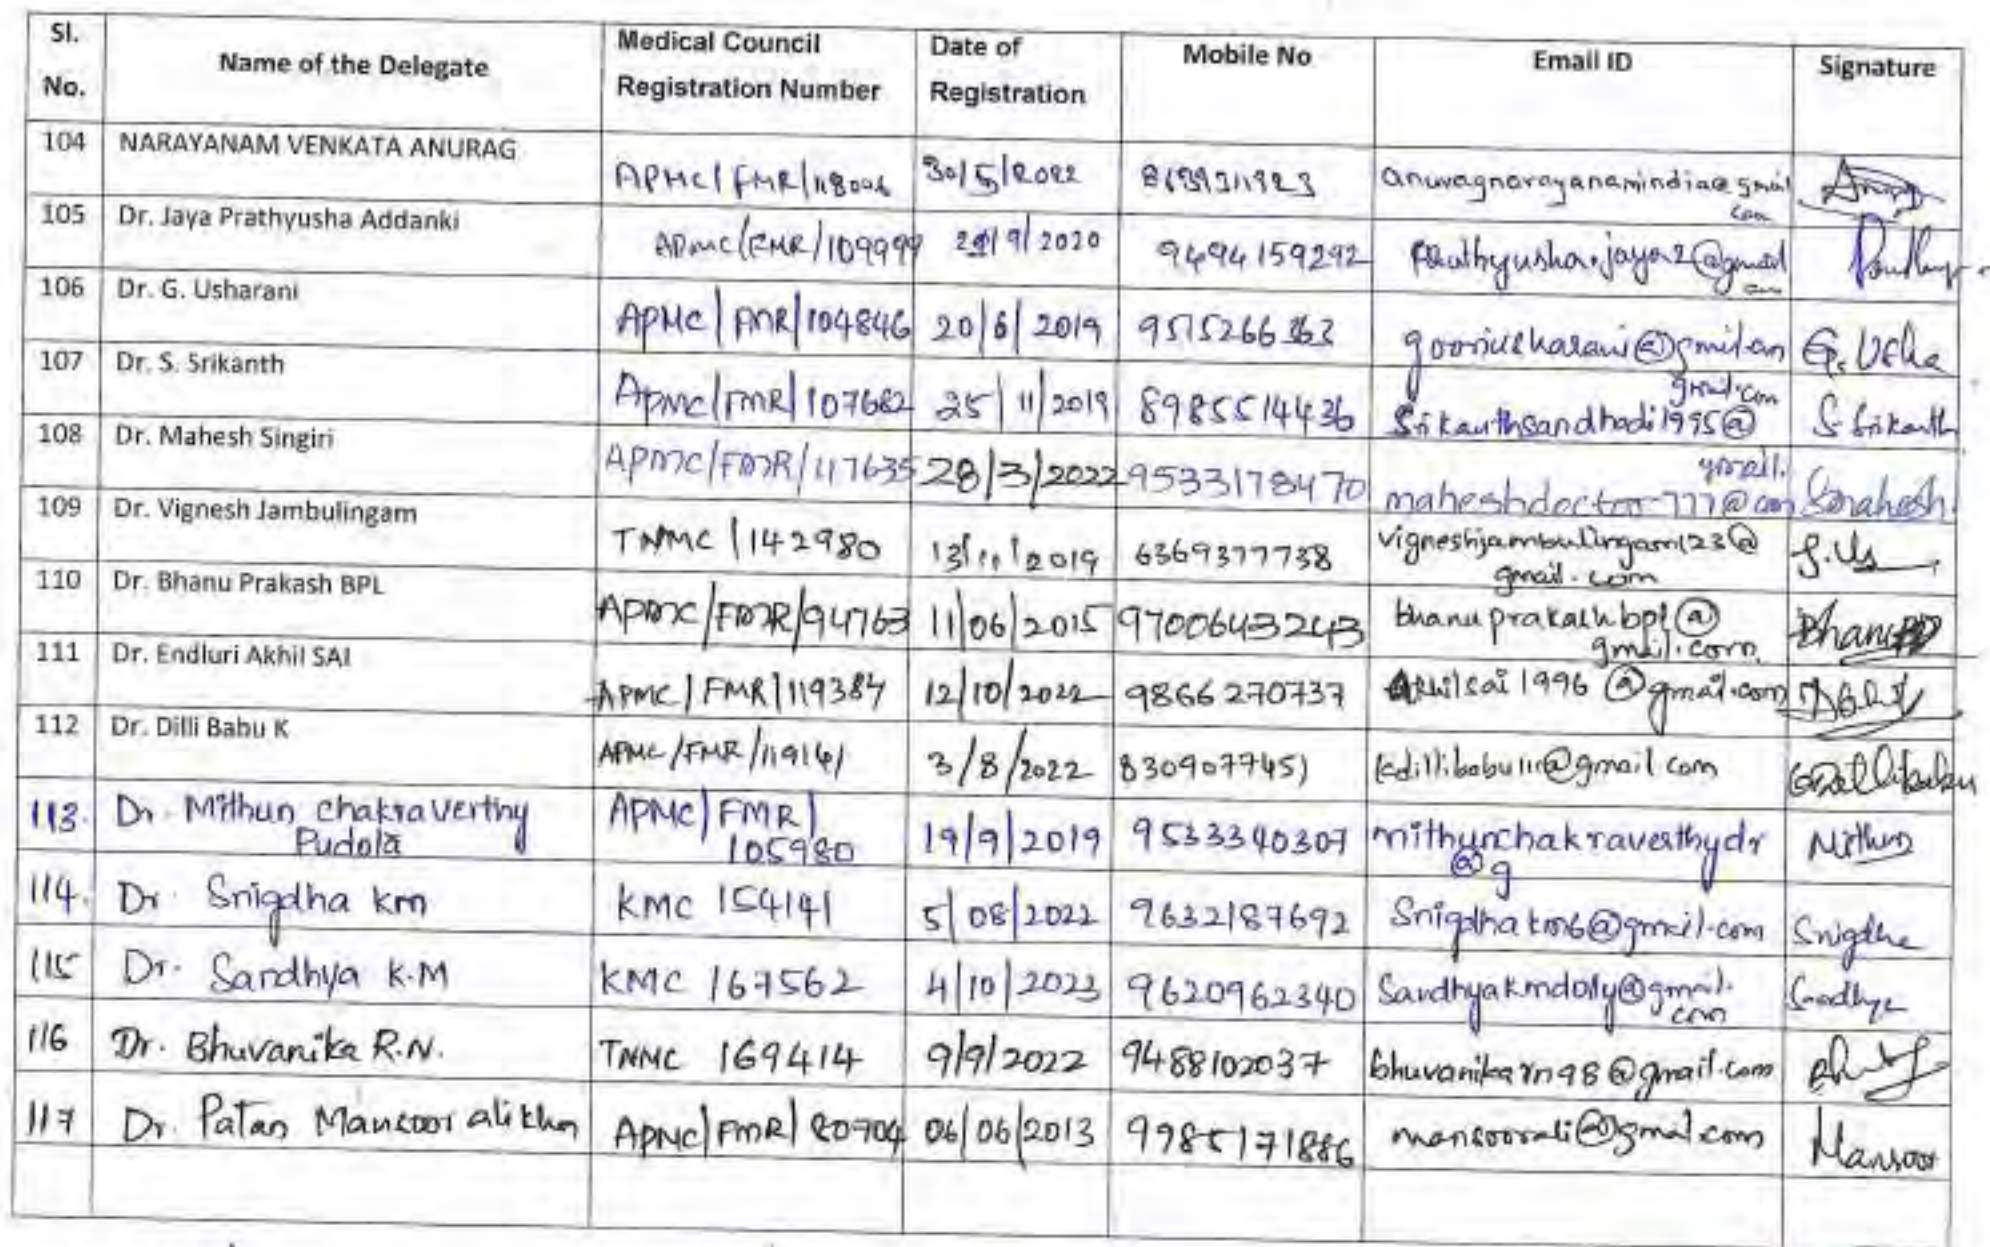 Sl. No. Name of the Delegate Medical Council Registration Number Date of Registration Mobile No Email ID Signature
104 NARAYANAM VENKATA ANURAG APMC/FMR/118006 30/5/2022 anuragnarayanamindia@gmail.com
105 Dr. Jaya Prathyusha Addanki APMC/FMR/109999 /9/2020 9494159292 Prathyusha.jaya2@gmail.com
106 Dr. G. Usharani APMC/FMR/104846 20/6/2019 9515266363 G. Usha
107 Dr. S. Srikanth APMC/FMR/107682 25/11/2019 8985514436 Srikanthsandhadi1995@gmail.com S. Srikanth
108 Dr. Mahesh Singiri APMC/FMR/117635 28/3/2022 9533178470 maheshdoctor777@gmail.com Smahesh
109 Dr. Vignesh Jambulingam TNMC/142980 2019 6369377738 vigneshjambulingam123@
gmail.com
110 Dr. Bhanu Prakash BPL APMC/FMR/94763 11/06/2015 9700643243 bhanuprakashbpl@
gmail.com Bhanu
111 Dr. Endluri Akhil SAI APMC/FMR/119384 12/10/2022 9866270737 Akhilsai1996@gmail.com
112 Dr. Dilli Babu K APMC/FMR/119161 3/8/2022 8309077451 kdillibabu111@gmail.com
113. Dr. Mithun Chakraverthy APMC/FMR/ 19/9/2019 9533340307 mithunchakraverthydr Mithun
Pudola 105980 @g
114. Dr. Snigdha km KMC 154141 5/08/2022 9632187692 Snigdhakm6@gmail.com Snigdha
115 Dr. Sandhya K.M KMC 167562 4/10/2023 9620962340 Sandhyakmdolly@gmail.
com Sandhya
116 Dr. Bhuvanika R.N. TNMC 169414 9/9/2022 9488102037 bhuvanikarn98@gmail.com
117 Dr. Patan Mansoor alikhan APMC/FMR/80704 06/06/2013 9985171886 mansoorali@gmail.com Mansoor